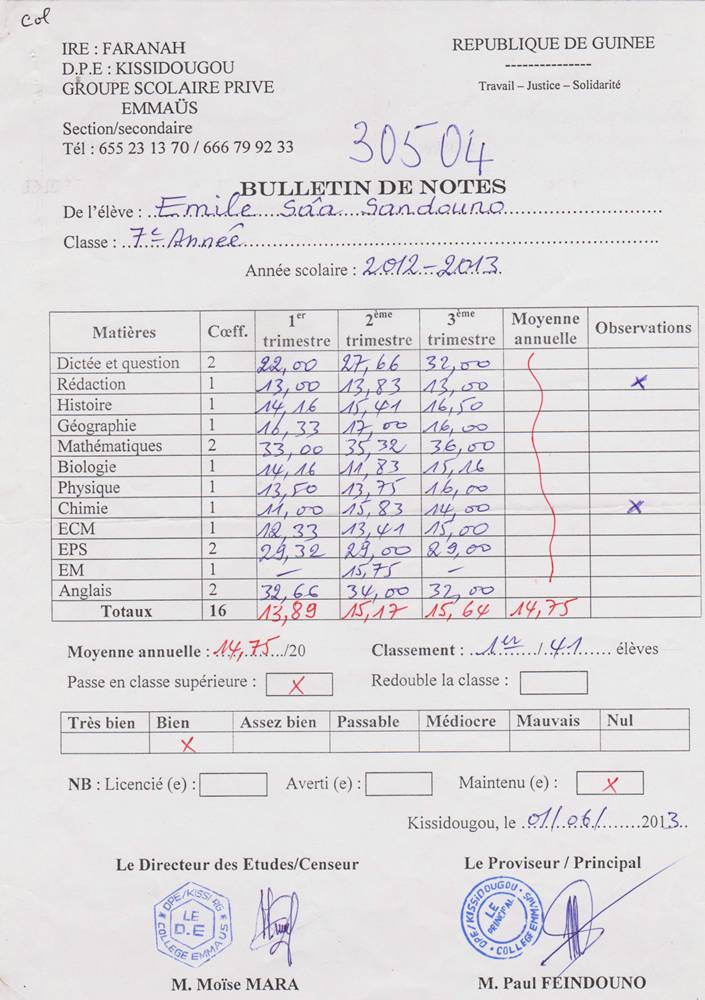 Col
IRE : FARANAH
D.P.E : KISSIDOUGOU
GROUPE SCOLAIRE PRIVE
EMMAÜS
Section/secondaire
Tél : 655 23 13 70 / 666 79 92 33
REPUBLIQUE DE GUINEE
---------------
Travail – Justice – Solidarité
30504
BULLETIN DE NOTES
De l'élève : Emile Sâa Sandouno
Classe : 7e Année
Année scolaire : 2012-2013
Matières Cœff. 1er trimestre 2ème trimestre 3ème trimestre Moyenne annuelle Observations
Dictée et question 2 22,00 27,66 32,00
Rédaction 1 13,00 13,83 13,00 x
Histoire 1 14,16 15,41 16,50
Géographie 1 16,33 17,00 16,00
Mathématiques 2 33,00 35,32 36,00
Biologie 1 14,16 11,83 15,16
Physique 1 13,50 13,75 16,00
Chimie 1 11,00 15,83 14,00 x
ECM 1 12,33 13,41 15,00
EPS 2 29,32 29,00 29,00
EM 1 – 15,75 –
Anglais 2 32,66 34,00 32,00
Totaux 16 13,89 15,17 15,64 14,75
Moyenne annuelle : 14,75/20 Classement : 1er / 41 élèves
Passe en classe supérieure : x Redouble la classe :
Très bien Bien Assez bien Passable Médiocre Mauvais Nul
x
NB : Licencié (e) : Averti (e) : Maintenu (e) : x
Kissidougou, le 01/06/2013
Le Directeur des Etudes/Censeur
Le Proviseur / Principal
DPE/KISSI RG
LE
D.E
COLLEGE EMMAÜS
DPE/KISSIDOUGOU
LE
PRINCIPAL
COLLEGE
M. Moïse MARA
M. Paul FEINDOUNO